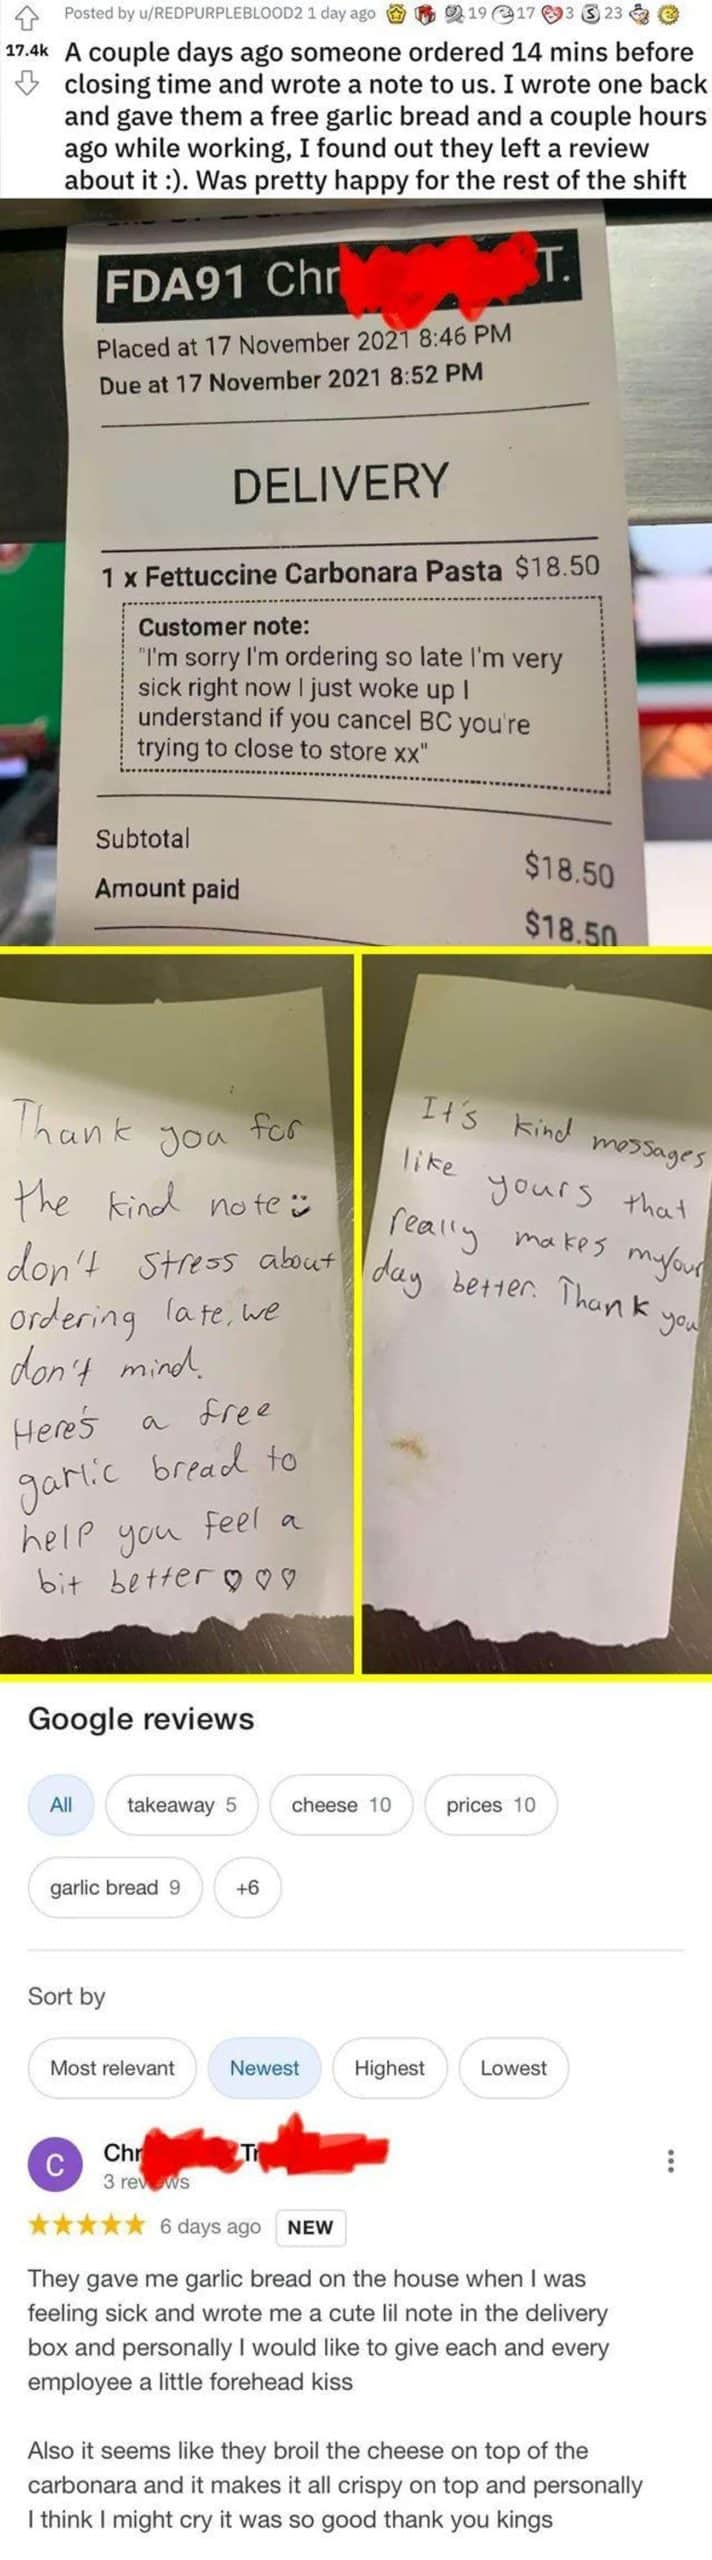 Posted by u/REDPURPLEBLOOD2 1 day ago 19 17 3 S 23
17.4k
A couple days ago someone ordered 14 mins before
closing time and wrote a note to us. I wrote one back
and gave them a free garlic bread and a couple hours
ago while working, I found out they left a review
about it :). Was pretty happy for the rest of the shift
FDA91 Chr T.
Placed at 17 November 2021 8:46 PM
Due at 17 November 2021 8:52 PM
DELIVERY
1 x Fettuccine Carbonara Pasta $18.50
Customer note:
"I'm sorry I'm ordering so late I'm very
sick right now I just woke up I
understand if you cancel BC you're
trying to close to store xx"
Subtotal $18.50
Amount paid $18.50
Thank you for
the kind note
don't stress about
ordering late, we
don't mind.
Here's a free
garlic bread to
help you feel a
bit better ♡♡♡
It's kind messages
like yours that
really makes my/our
day better. Thank you
Google reviews
All takeaway 5 cheese 10 prices 10
garlic bread 9 +6
Sort by
Most relevant Newest Highest Lowest
C
Chr Tr
3 reviews
6 days ago NEW
They gave me garlic bread on the house when I was
feeling sick and wrote me a cute lil note in the delivery
box and personally I would like to give each and every
employee a little forehead kiss
Also it seems like they broil the cheese on top of the
carbonara and it makes it all crispy on top and personally
I think I might cry it was so good thank you kings